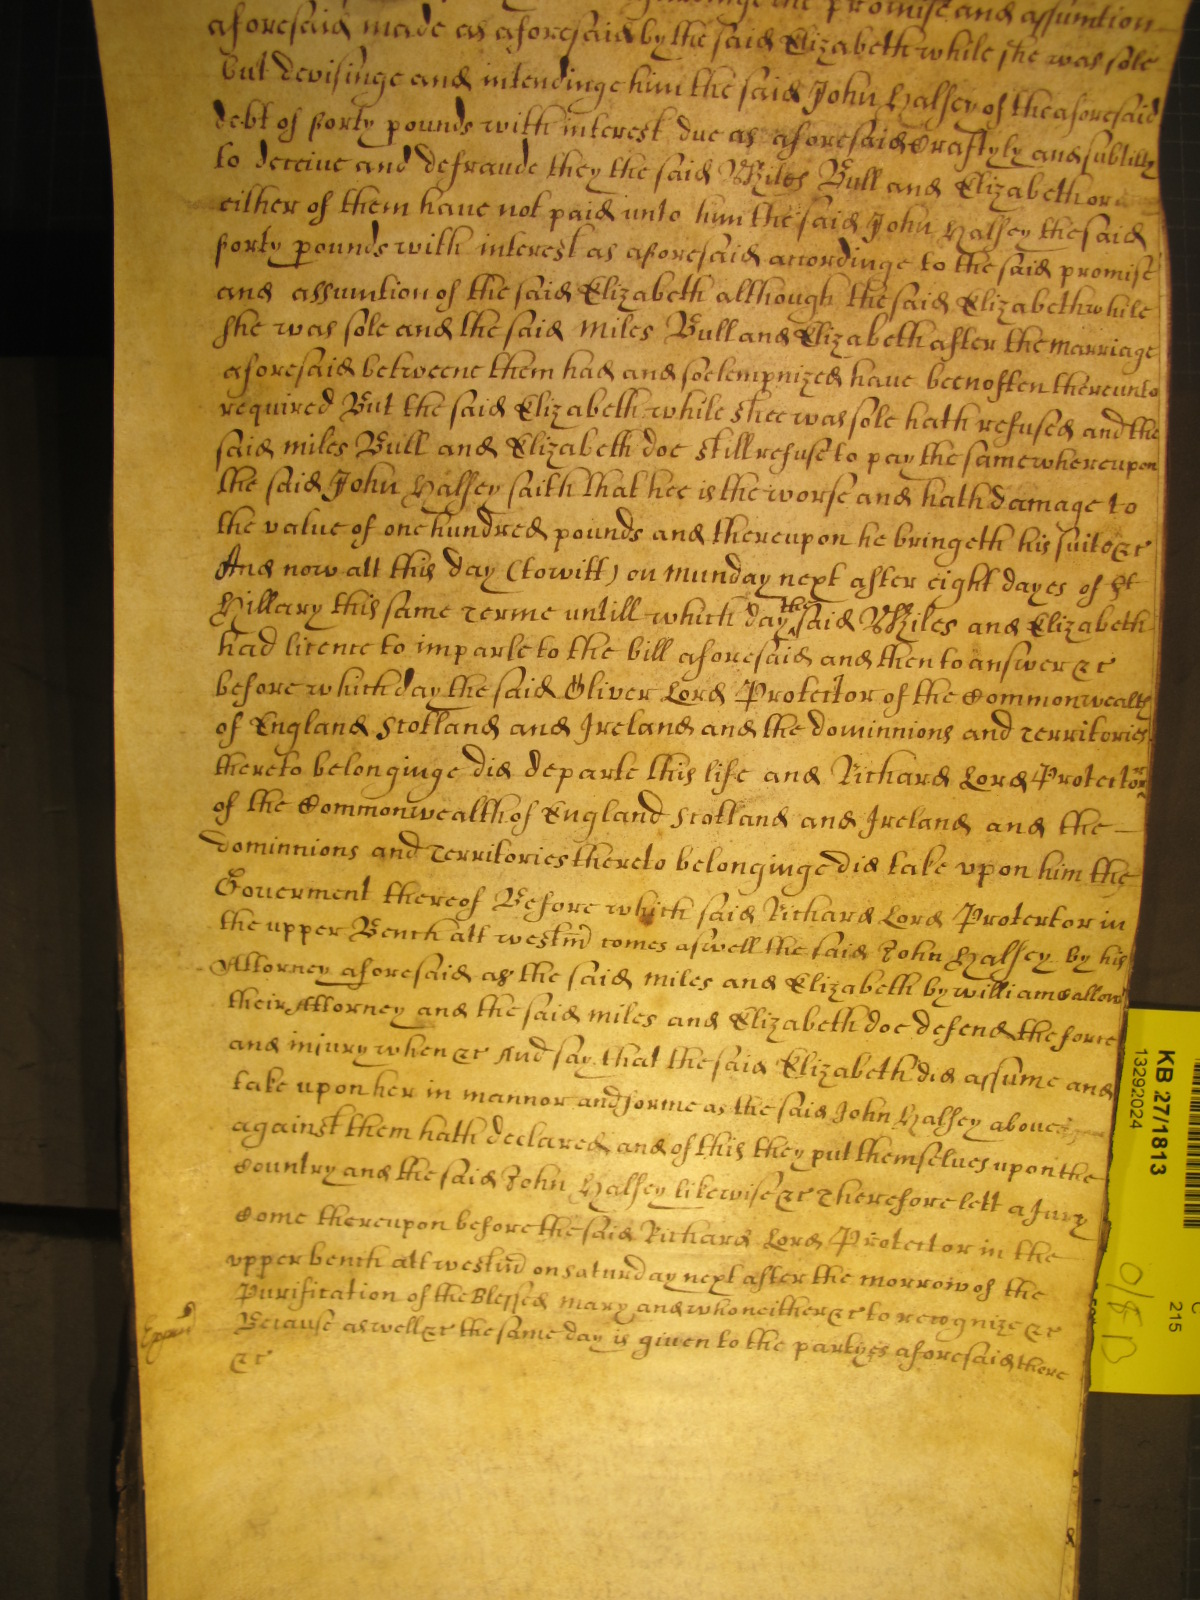 the promise and assumtion
aforesaid made as aforesaid by the said Elizabeth while she was sole
but devisinge and intendinge him the said John Halsey of the aforesaid
debt of forty pounds with interest due as aforesaid Craftyly and subtilly
to deceive and defraude they the said Miles Bull and Elizabeth or
either of them have not paid unto him the said John Halsey the said
forty pounds with interest as aforesaid accordinge to the said promise
and assumtion of the said Elizabeth although the said Elizabeth while
she was sole and the said Miles Bull and Elizabeth after the marriage
aforesaid betweene them had and soelempnized have been often thereunto
required But the said Elizabeth while shee was sole hath refused and the
said miles Bull and Elizabeth doe still refuse to pay the same whereupon
the said John Halsey saith that hee is the worse and hath damage to
the value of one hundred pounds and thereupon he bringeth his suite &c
And now att this day (to witt) on Munday next after eight dayes of St
Hillary this same Terme untill which day the said Miles and Elizabeth
had licence to imparle to the bill aforesaid and then to answer &c
before which day the said Oliver Lord Protector of the Commonwealth
of England Scotland and Ireland and the dominnions and Territories
thereto belonginge did departe this life and Richard Lord Protector
of the Commonwealth of England Scotland and Ireland and the
Dominnions and Territories thereto belonginge did take upon him the
Goverment thereof Before which said Richard Lord Protector in
the upper Bench att Westm̄ comes aswell the said John Halsey by his
Attorney aforesaid as the said miles and Elizabeth by William
their Attorney and the said miles and Elizabeth doe defend the force
and injury when &c And say that the said Elizabeth did assume and
take upon her in mannor and forme as the said John Halsey above
against them hath declared and of this they put themselves upon the
Country and the said John Halsey likewise &c Therefore lett a Jury
Come thereupon before the said Richard Lord Protector in the
upper bench att Westm̄ on Saturday next after the morrow of the
Purification of the Blessed Mary and who neither &c to recognize &c
Because aswell &c the same day is given to the partyes aforesaid there
&c
KB 27/1813
13292024
215